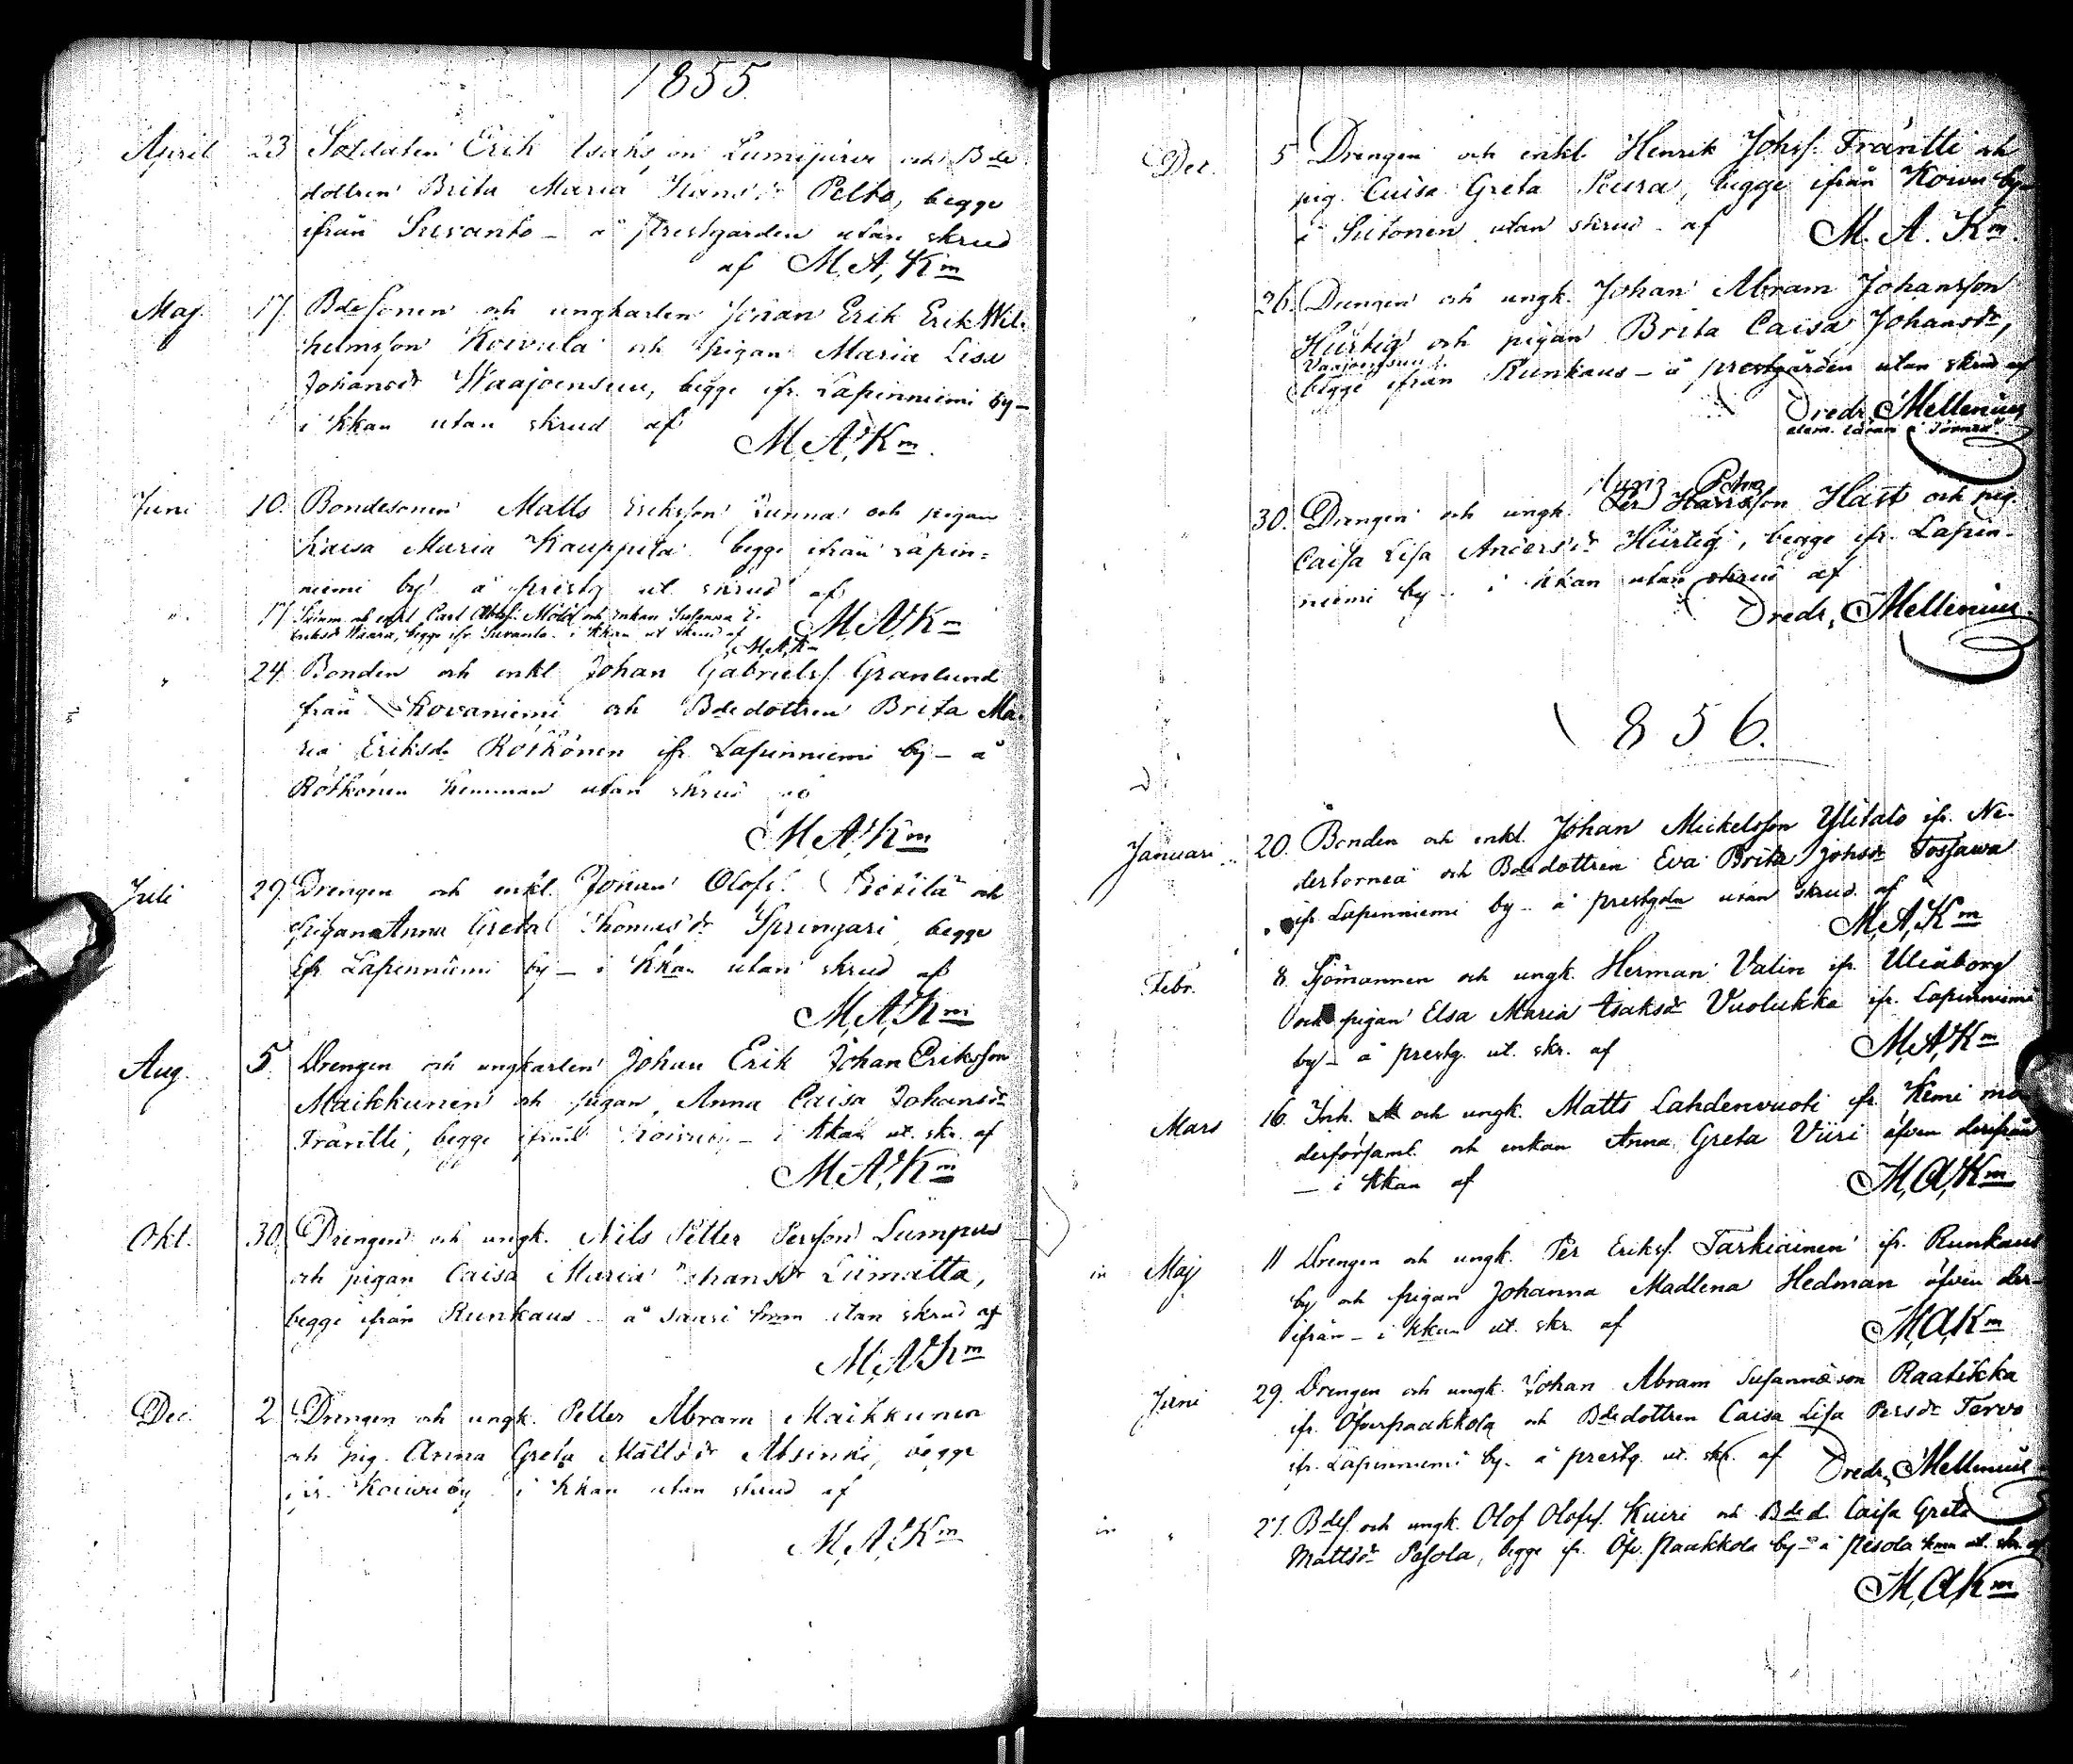 1855
April 23 Soldaten Erik Isaks on Lumijärvi och Bde
dottren Brita Maria Hansdr Pelto, begge
ifrån Suvanto - å prestgården utan skrud
af M, A, Km
Maj 17. Bdesonen och ungkarlen Johan Erik Erik Wil-
helmsson Koivula och pigan Maria Lisa
Johansdr Waajoensuu, begge ifr. Lapinniemi by -
i Kkan utan skrud af M, A, Km.
Juni 10. Bondesonen Matts Eriksson Junna och pigan
Kaisa Maria Kauppila begge ifrån Lapin=
niemi by å prestg ut. skrud af
M, A, Km
" 17 och enkl Carl och enkan Susanna
Niara, begge ifr. Suvanto - i Kkan ut skrud af
M, A, Km
" 24. Bonden och enkl Johan Gabrielss. Granlund
från Rovaniemi och Bdedottren Brita Ma-
ria Eriksdr Rötkönen ifr. Lapinniemi by - å
Rötkönen hemman utan skrud af
M, A, Km
Juli 29. Drengen och enkl. Johan Olofs. och
pigan Anna Greta Thomasdr Springari begge
ifr. Lapinniemi by - i Kkan utan skrud af
M, A, Km
Aug. 5. Drengen och ungkarlen Johan Erik Johan Eriksson
Maikkunen och pigan Anna Caisa Johansdr
Fräntti, begge ifrån Koivu by - i Kkan ut. skr. af
M, A, Km
Okt. 30. Drengen och ungk. Nils Petter Persson Lumpus
och pigan Caisa Maria Johansdr Liimatta,
begge ifrån Runkaus - å Saari hmn utan skrud af
M, A, Km
Dec. 2 Drengen och ungk. Petter Abram Maikkunen
och pig. Anna Greta Mattsdr Absinki, begge
ifr. Koivu by i Kkan utan skrud af
M, A, Km
Dec. 5 Drengen och enkl. Henrik Johss. Fräntti och
pig. Caisa Greta Peura, begge ifrån Koivu by
i Sutonen utan skrud af M. A. Km.
" 26. Drengen och ungk. Johan Abram Johansson
Hurtig och pigan Brita Caisa Johansdr,
Vaajoensuu
begge ifrån Runkaus - å prestgården utan skrud af
Fredr. Mellenius
i Torneå
" 30. Drengen och ungk. Per Hansson Hast och pig.
Caisa Lisa Andersdr Hurtig, begge ifr. Lapin-
niemi by - i Kkan utan skrud af
Fredr. Mellenius
1856.
Januari 20. Bonden och enkl. Johan Mickelsson Ylitalo ifr. Ne-
dertorneå och Bdedottren Eva Brita Johsdr Tossawa
ifr. Lapinniemi by - å prestgdn utan skrud. af
M, A, Km
Febr. 8. Sjömannen och ungk. Herman Valin ifr. Uleåborg
och pigan Elsa Maria Isaksdr Vuolukka ifr. Lapinniemi
by - å prestg. ut. skr. af M, A, Km
Mars 16. Inh. och ungk. Matts Lahdenvuoti ifr. Kemi mo-
derförsaml. och enkan Anna Greta Viiri äfven derifrån
- i Kkan af M, A, Km
Maj 11 Drengen och ungk. Per Erikss. Tarkiainen ifr. Runkaus
by och pigan Johanna Madlena Hedman äfven der-
ifrån - i Kkan ut. skr. af M, A, Km
Juni 29. Drengen och ungk. Johan Abram Susannæson Raatikka
ifr. Öfverpaakkola och Bdedottren Caisa Lisa Persdr Tervo
ifr. Lapinniemi by. å prestg. ut. skr. af Fredr. Mellenius
" 27. Bdes. och ungk. Olof Olofss. Kuiri och Bde d. Caisa Greta
Mattsdr Pesola, begge ifr. Öfv. Paakkola by - å Pesola hmn ut. skr. af
M, A, Km